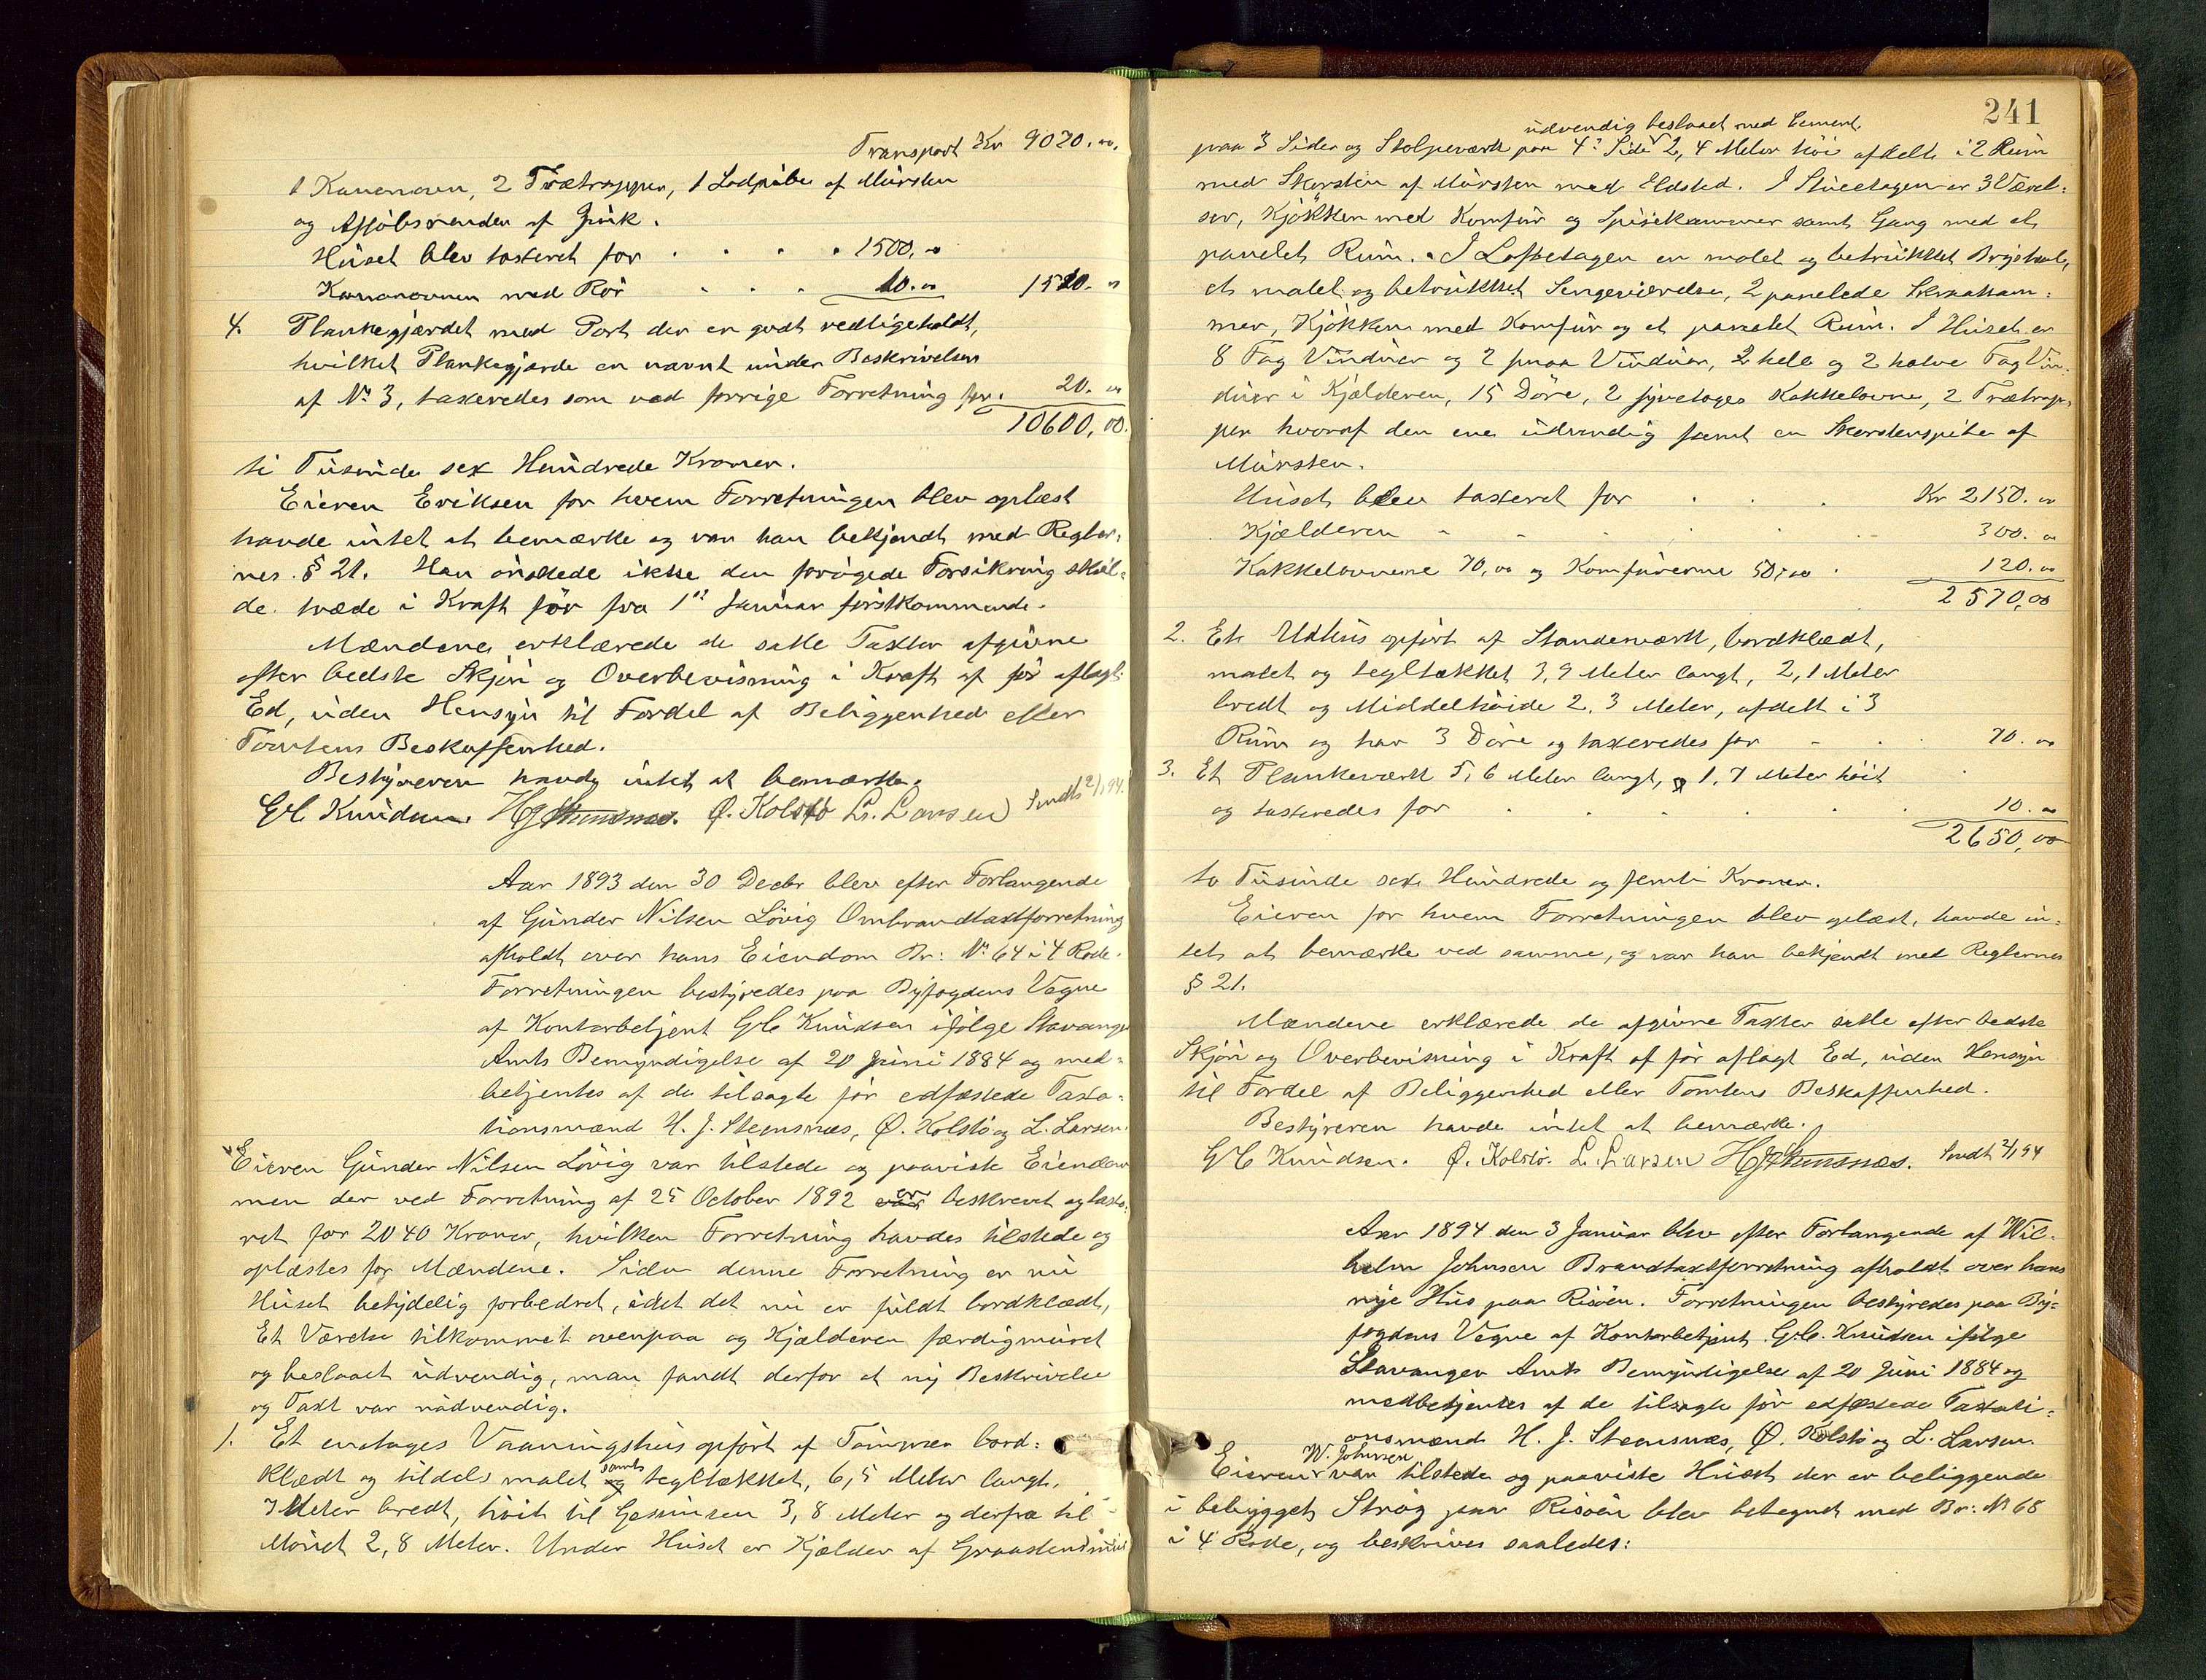 Transport Kr 9070.00.
1 Kanonovn, 2 Trætrapper, 1 Lodpibe af Mürsten
og Afløbsrender af Zink.
Hüset blev taxeret for . . . . 1500,00
Kanonovnen med Rör . . . 10.00 1510.00
4. Plankegjærdet med Port der er godt vedligeholdt,
hvilket Plankegjærde er nævnt ünder Beskrivelsen
af No 3, taxeredes som ved forrige Forretning for. 20.00
10600,00.
ti Tüsinde sex Hündrede Kroner.
Eieren Eriksen for hvem Forretningen blev oplæst
havde intet at bemærke og var han bekjendt med Regler-
nes § 21. Han önskede ikke den forögede Forsikring skül-
de træde i Kraft för fra 1ste Januar förstkommende.
Mændene erklærede de satte Taxter afgivne
efter bedste Skjön og Overbevisning i Kraft af för aflagt
Ed, üden Hensyn til Fordel af Beliggenhed eller
Tomtens Beskaffenhed.
Bestyreren havde intet at bemærke.
G C Knüdsen. H J Stensnæs. Ø. Kolstø L. Larsen Sendt 2/1 94.
Aar 1893 den 30 Decbr blev efter Forlangende
af Günder Nilsen Lövig Ombrandtaxtforretning
afholdt over hans Eiendom Br: No 64 i 4 Rode.
Forretningen bestyredes paa Byfogdens Vegne
af Kontorbetjent G C Knüdsen ifölge Stavanger
Amts Bemyndigelse af 20 Jüni 1884 og med-
betjentes af de tilsagte för edfæstede Taxa-
tionsmænd H. J. Stensnæs, Ø. Kolstö og L. Larsen.
Eieren Günder Nilsen Lövig var tilstede og paaviste Eiendom
men der ved Forretning af 25 October 1892 er beskrevet og taxe-
ret for 2040 Kroner, hvilken Forretning havdes tilstede og
oplæstes for Mændene. Siden denne Forretning er nü
Hüset betydelig forbedret, idet det nü er füldt bordklædt,
Et Værelse tilkommet ovenpaa og Kjælderen færdigmüret
og beslaaet üdvendig, man fandt derfor at ny Beskrivelse
og Taxt var nödvendig.
1. Et enetages Vaaningshüs opfört af Tömmer bord-
klædt og tildels malet samt tegltækket, 6,5 Meter langt,
7 Meter bredt, höit til Gesimsen 3,8 Meter og derfra til
Mönet 2,8 Meter. Under Hüset er Kjælder af Graastensmür
241
üdvendig beslaaet med Cement.
paa 3 Sider og Stolpeværk paa 4de Side 2,4 Meter höi afdelt i 2 Rüm
med Skorsten af Mürsten med Ildsted. I Stüeetagen er 3 Værel-
ser, Kjökken med Komfür og Spisekammer samt Gang med et
panelet Rüm. I Loftsetagen er malet og betrükket Brystval,
et malet og betrükket Sengeværelse, 2 panelede Skraakam-
mer, Kjökken med Komfür og et panelet Rüm. I Hüset er
8 Fag Vindüer og 2 smaa Vindüer, 2 hele og 2 halve Fag Vin-
düer i Kjælderen, 15 Döre, 2 syvetages Kakkelovne, 2 Trætrap-
per hvoraf den ene üdvendig samt en Skorstenspibe af
Mürsten.
Hüset blev taxeret for . . . Kr 2150.00
Kjælderen - - . . . 300.00
Kakkelovnene 70,00 og Komfürerne 50,00 . 120.00
2570,00
2. Et Udhüs opfört af Standerværk, bordklædt,
malet og tegltækket 3,9 Meter langt, 2,1 Meter
bredt og Middelhöide 2,3 Meter, afdelt i 3
Rüm og har 3 Döre og taxeredes for - . . 70.00
3. Et Plankeværk 5,6 Meter langt, 1,7 Meter höit
og taxeredes for . . . . . 10.00
2650,00
to Tüsinde sex Hündrede og femti Kroner.
Eieren for hvem Forretningen blev oplæst, havde in-
tet at bemærke ved samme, og var han bekjendt med Reglernes
§ 21.
Mændene erklærede de afgivne Taxter satte efter bedste
Skjön og Overbevisning i Kraft af för aflagt Ed, üden Hensyn
til Fordel af Beliggenhed eller Tomtens Beskaffenhed.
Bestyreren havde intet at bemærke.
G C Knüdsen. Ø. Kolstø. L. Larsen H J Stensnæs. Sendt 2/1 94
Aar 1894 den 3 Januar blev efter Forlangende af Wil-
helm Johnsen Brandtaxtforretning afholdt over hans
nye Hüs paa Risöen. Forretningen bestyredes paa By-
fogdens Vegne af Kontorbetjent G. C. Knüdsen ifölge
Stavanger Amts Bemyndigelse af 20 Jüni 1884 og
medbetjentes af de tilsagte för edfæstede Taxati-
onsmænd H. J. Stensnæs, Ø. Kolstö og L. Larsen.
Eieren W. Johnsen var tilstede og paaviste Hüset der er beliggende
i bebygget Strög paa Risöen blev betegnet med Br: No 68
i 4 Rode, og beskrives saaledes: